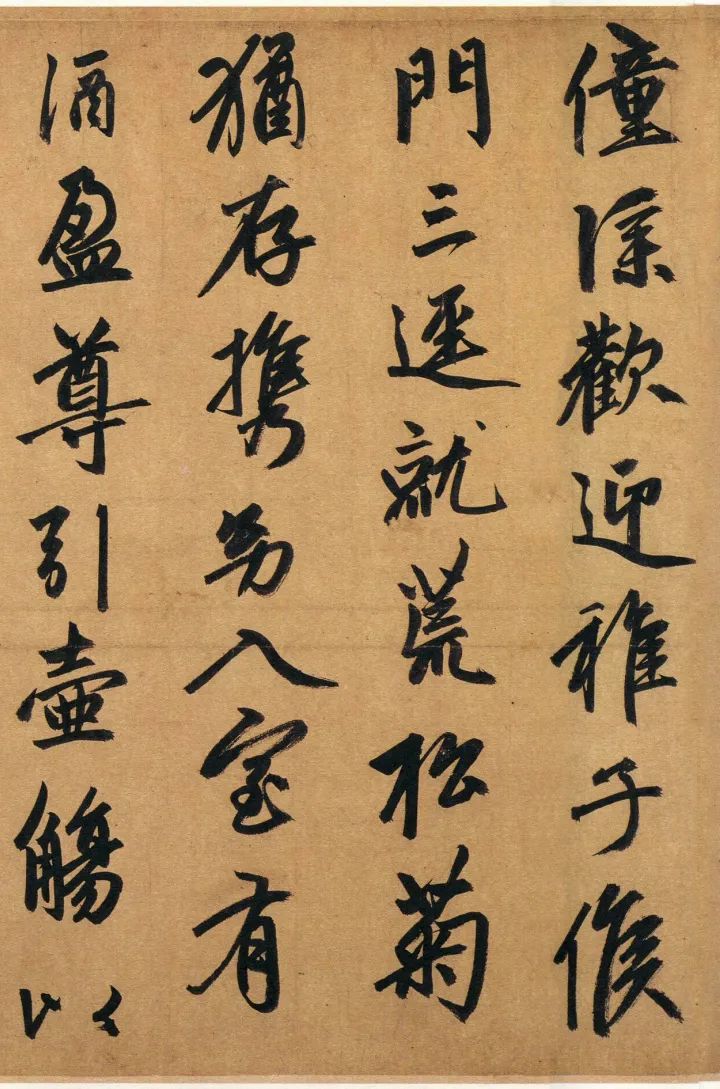 僮僕歡迎稚子候
門三逕就荒松菊
猶存携幼入室有
酒盈尊引壺觴以